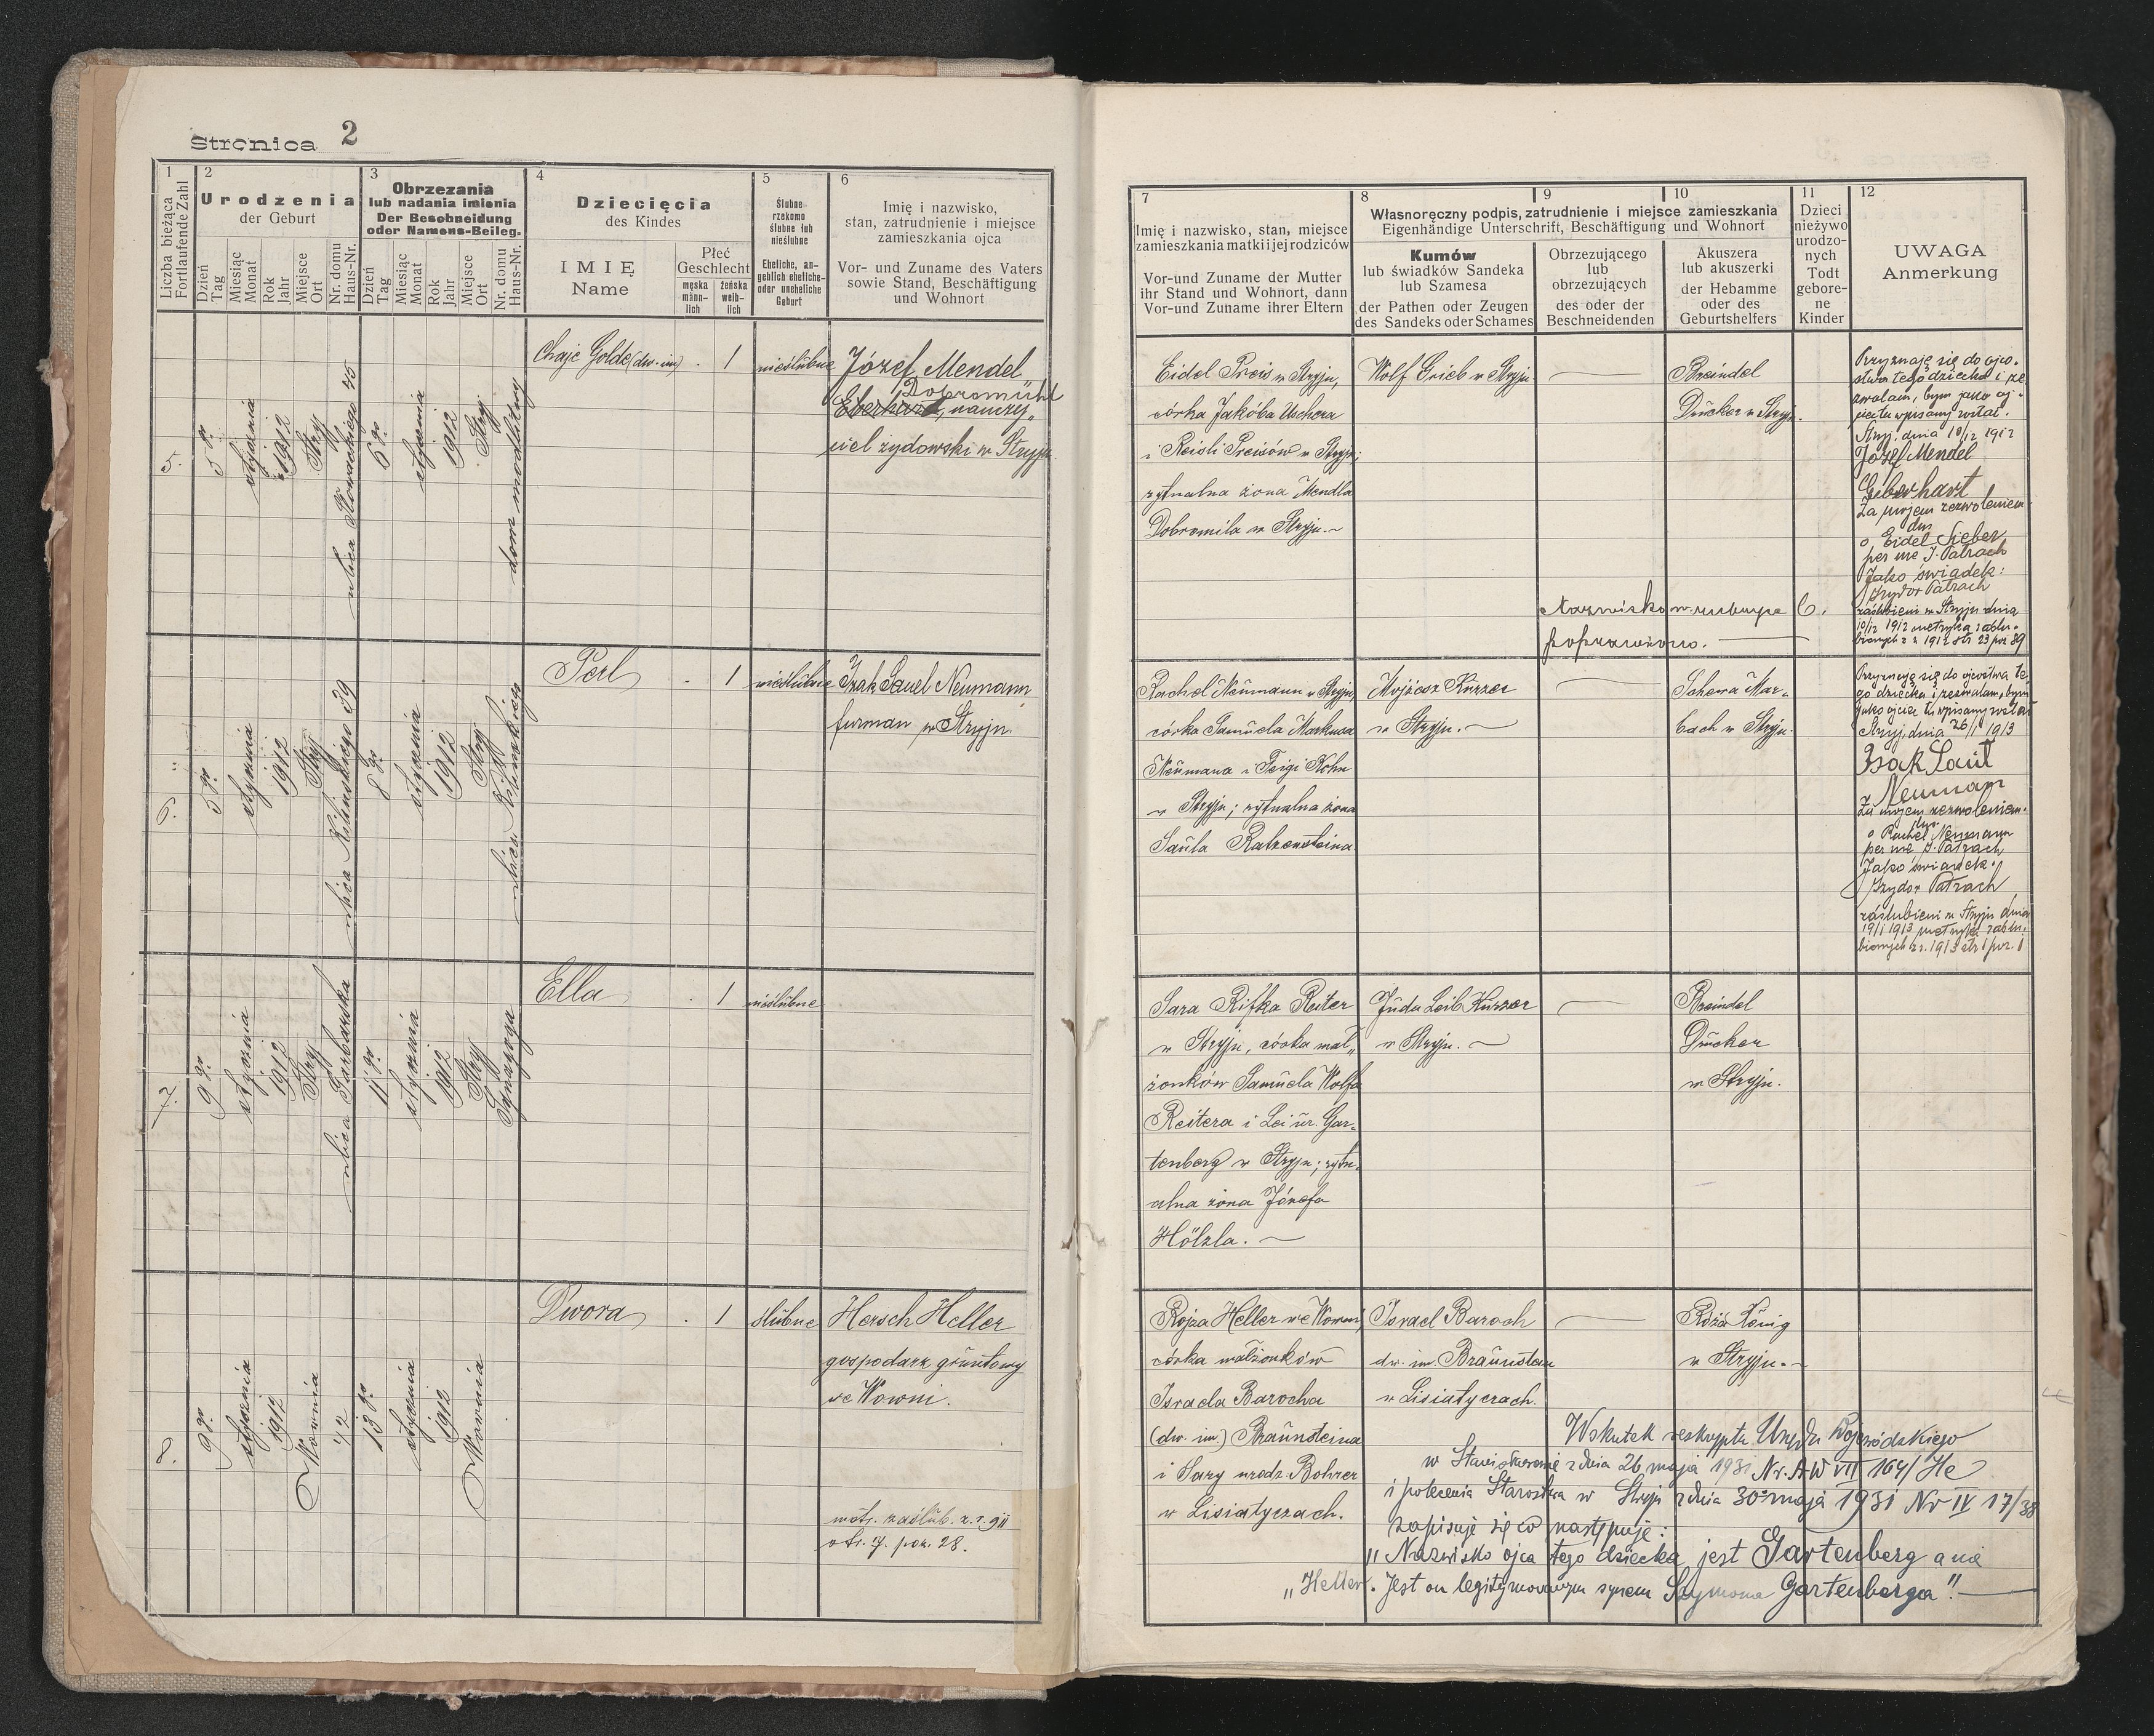 Stronica 2
1
Liczba bieżąca
Fortlaufende Zahl
2
Urodzenia
der Geburt
Dzień
Tag
Miesiąc
Monat
Rok
Jahr
Miejsce
Ort
Nr. domu
Haus-Nr.
3
Obrzezania
lub nadania imienia
Der Beschneidung
oder Namens-Beileg.
Dzień
Tag
Miesiąc
Monat
Rok
Jahr
Miejsce
Ort
Nr. domu
Haus-Nr.
4
Dziecięcia
des Kindes
IMIĘ
Name
Płeć
Geschlecht
męska
männ-
lich
żeńska
weib-
lich
5
Ślubne
rzekomo
ślubne lub
nieślubne
Eheliche, an-
geblich eheliche
oder uneheliche
Geburt
6
Imię i nazwisko,
stan, zatrudnienie i miejsce
zamieszkania ojca
Vor- und Zuname des Vaters
sowie Stand, Beschäftigung
und Wohnort
7
Imię i nazwisko, stan, miejsce
zamieszkania matki i jej rodziców
Vor-und Zuname der Mutter
ihr Stand und Wohnort, dann
Vor-und Zuname ihrer Eltern
8
9
10
Własnoręczny podpis, zatrudnienie i miejsce zamieszkania
Eigenhändige Unterschrift, Beschäftigung und Wohnort
Kumów
lub świadków Sandeka
lub Szamesa
der Pathen oder Zeugen
des Sandeks oder Schames
Obrzezującego
lub
obrzezujących
des oder der
Beschneidenden
Akuszera
lub akuszerki
der Hebamme
oder des
Geburtshelfers
11
Dzieci
nieżywo
urodzo-
nych
Todt
gebore-
ne
Kinder
12
UWAGA
Anmerkung
5.
5go
stycznia
1912
Stryj
ulica Słowackiego 45
6go
stycznia
1912
Stryj
dom modlitwy
Chaje Golde (dw. im)
. 1
nieślubne
Józef Mendel
Dobromühl
Eberhard, nauczy„
ciel żydowski w Stryju
Eidel Preis w Stryju,
córka Jakóba Uschera
i Reisli Preisów w Stryju;
rytualna żona Mendla
Dobromila w Stryju.
Wolf Grieb w Stryju
Breindel
Drücker w Stryju.
Przyznaję się do ojco-
stwa tego dziecka i ze
zwalam, bym jako oj-
ciec tu wpisany został.
Stryj, dnia 10/12 1912
Józef Mendel
Eberhart
Za mojem zezwoleniem
o Eidel Sieber
per me I. Patrach
Jako świadek:
Izydor Patrach
zaślubieni w Stryju dnia
10/12 1912 metryka zaślu-
bionych z r. 1912 str 23 poz 89
Nazwisko w rubryce 6.
poprawiono.
6.
5go
stycznia
1912
Stryj
ulica Kilińskiego 39
8go
stycznia
1912
Stryj
ulica Kilińskiego
Perl
. 1
nieślubne
Izak Saul Neumann
furman w Stryju.
Rachel Neumann w Stryju,
córka Samuela Markusa
Neumana i Feigi Kohn
w Stryju; rytualna żona
Saula Katzensteina
Mojżesz Kurzer
w Stryju.
Schewa Mar-
bach w Stryju.
Przyznaję się do ojcostwa te-
go dziecka i zezwalam, bym
jako ojciec tu wpisany został
Stryj, dnia 26/1 1913
Isak Saul
Neuman
Za mojem zezwoleniem.
o Rachel Neumann
per me I. Patrach
Jako świadek:
Izydor Patrach
zaślubieni w Stryju dnia
19/1 1913 metryka zaślu-
bionych z r. 1913 str 1 poz. 1
7.
9go
stycznia
1912
Stryj
ulica Garbarska
11go
stycznia
1912
Stryj
Synagoga
Ella
. 1
nieślubne
Sara Rifka Reiter
w Stryju, córka mał„
żonków Samuela Wolfa
Reitera i Lei ur. Gar-
tenberg w Stryju; rytu-
alna żona Józefa
Hölzla.
Juda Leib Kurzer
w Stryju.
Breindel
Drucker
w Stryju.
8.
9go
stycznia
1912
Wownia
42
13go
stycznia
1912
Wownia
Dwora
. 1
ślubne
Hersch Heller
gospodarz gruntowy
we Wowni.
metr. zaślub. z. r. 911
str. 7. poz. 28.
Rojza Heller we Wowni,
córka małżonków
Israela Barocha
(dw. im.) Braunsteina
i Sary urodz. Bohrer
w Lisiatyczach.
Israel Baroch
dw. im. Braunstein
w Lisiatyczach.
Róża König
w Stryju.
Wskutek reskryptu Urzędu Wojewódzkiego
w Stanisławowie z dnia 26 maja 1931 Nr. AW VII 164/He
i polecenia Starostwa w Stryju z dnia 30 maja 1931 Nr IV 17/38
zapisuje się co następuje:
„Nazwisko ojca tego dziecka jest Gartenberg a nie
„Heller. Jest on legitymowanym synem Szymona Gartenberga".